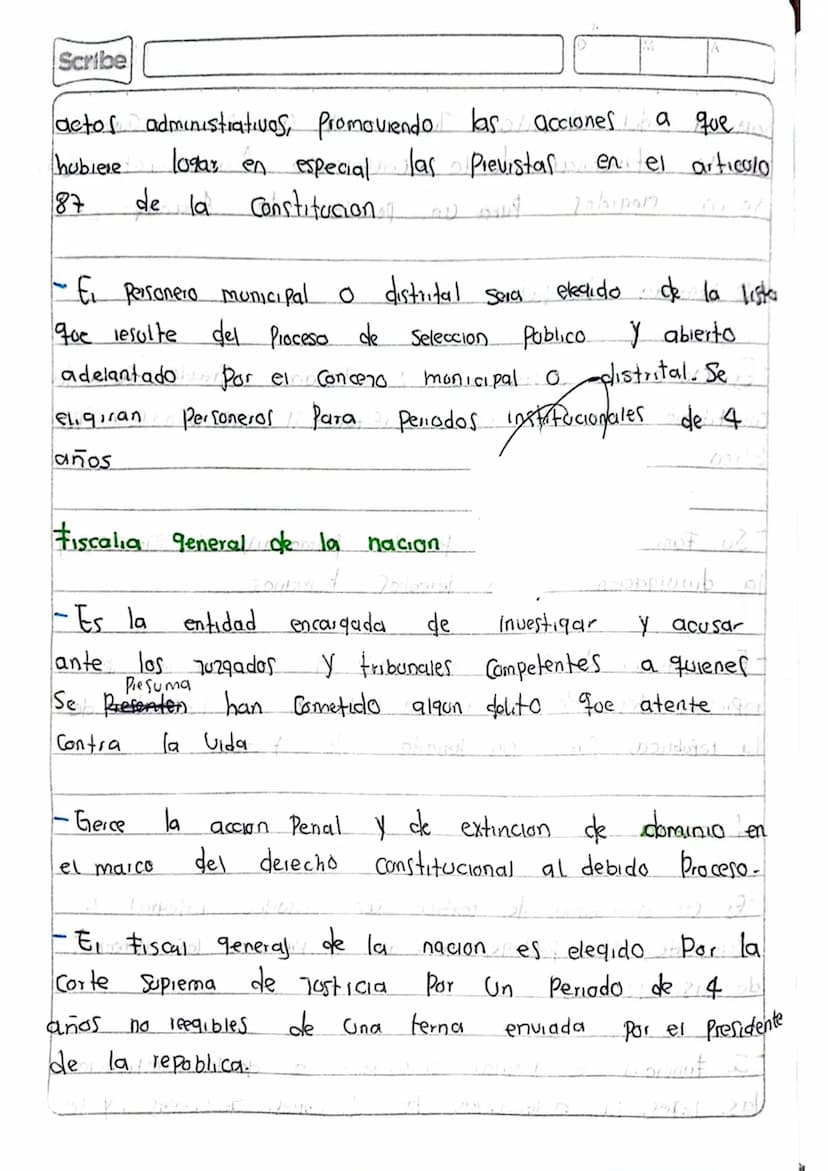 Scribe
D M A
actos administrativos, Promoviendo las acciones a que
hubiere lugar en especial las Previstas en el articulo
87 de la Constitucion
- El Personero municipal o distrital sera elegido de la lista
que resulte del Proceso de Seleccion Publico y abierto
adelantado Por el Concejo municipal o distrital. Se
eligiran Personeros Para Periodos institucionales de 4
años
Fiscalia general de la nacion
- Es la entidad encargada de investigar y acusar
ante los Juzgados y tribunales Competentes a quienes
Presuma
Se Presenten han Cometido algun delito que atente
Contra la Vida
- Gerce la accion Penal y de extincion de dominio en
el marco del derecho Constitucional al debido Proceso.
- El Fiscal general de la nacion es elegido Por la
Corte Suprema de Justicia Por Un Periodo de 4
años no reegibles de Una terna enviada Por el Presidente
de la republica.